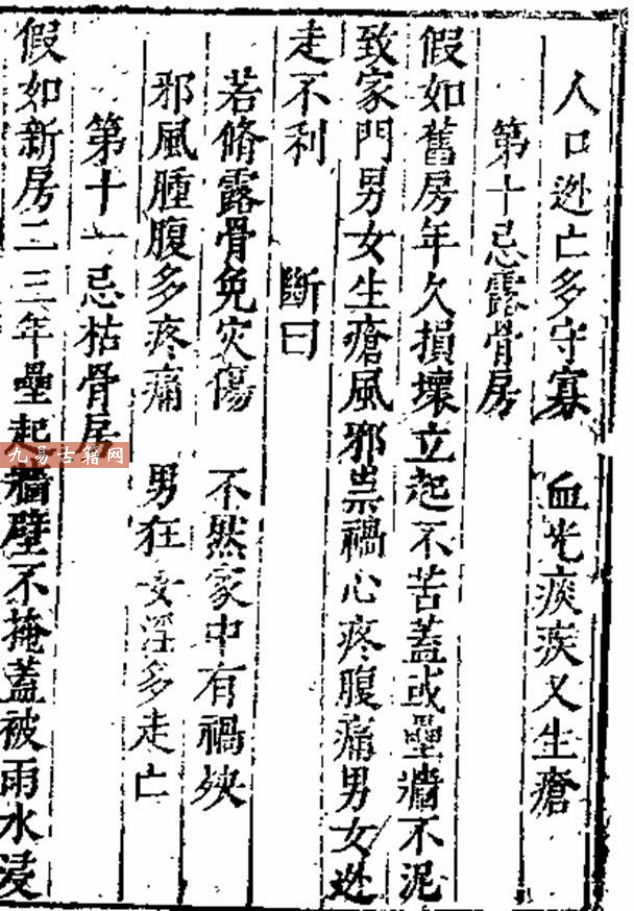 人口迯亡多守寡　血光痰疾又生瘡
第十忌露骨房
假如舊房年久損壞立起不苦蓋或壘墻不泥
致家門男女生瘡風邪祟禍心疼腹痛男女迯
走不利　　斷曰
若脩露骨免灾傷　不然家中有禍殃
邪風腫腹多疼痛　男狂女淫多走亡
第十一忌枯骨房
假如新房二三年壘起墻壁不掩蓋被雨水浸
九易古籍网